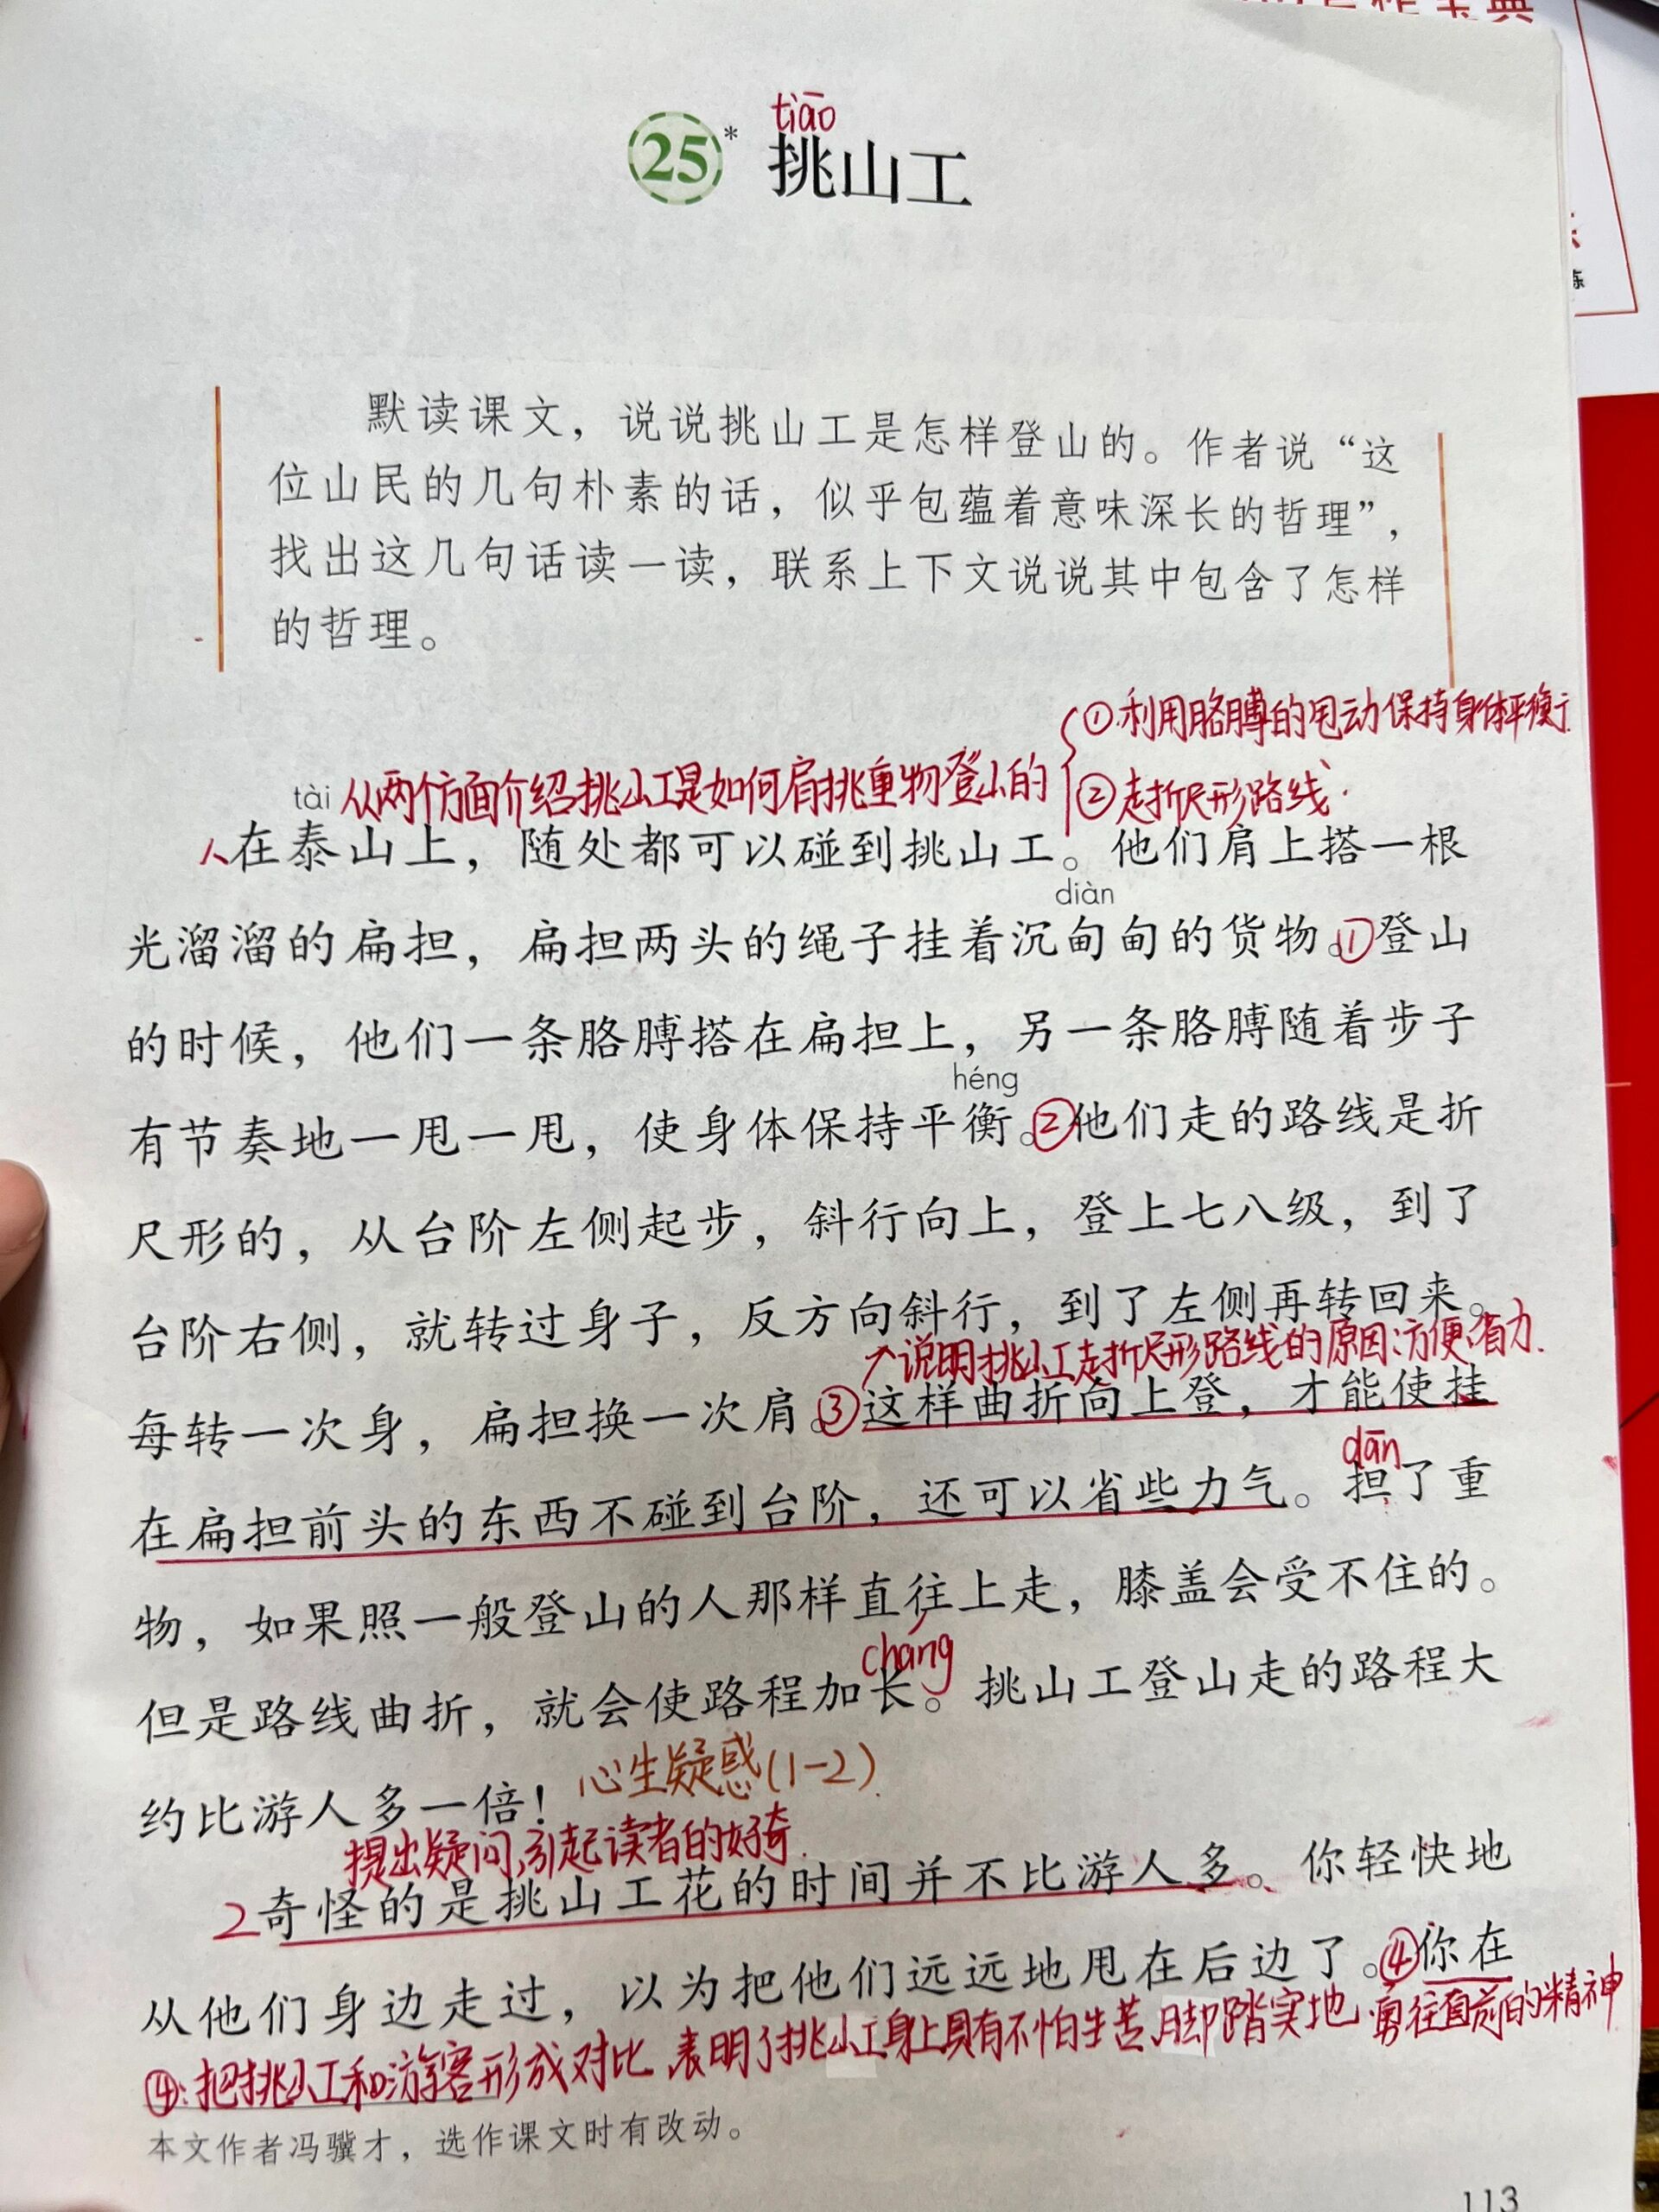 tiāo
25* 挑山工
默读课文，说说挑山工是怎样登山的。作者说“这
位山民的几句朴素的话，似乎包蕴着意味深长的哲理”，
找出这几句话读一读，联系上下文说说其中包含了怎样
的哲理。
①利用胳膊的甩动保持身体平衡
tài 从两个方面介绍挑山工是如何肩挑重物登山的 ②走折尺形路线.
1在泰山上，随处都可以碰到挑山工。他们肩上搭一根
diàn
光溜溜的扁担，扁担两头的绳子挂着沉甸甸的货物。①登山
的时候，他们一条胳膊搭在扁担上，另一条胳膊随着步子
héng
有节奏地一甩一甩，使身体保持平衡。②他们走的路线是折
尺形的，从台阶左侧起步，斜行向上，登上七八级，到了
台阶右侧，就转过身子，反方向斜行，到了左侧再转回来。
说明挑山工走折尺形路线的原因:方便、省力.
每转一次身，扁担换一次肩。③这样曲折向上登，才能使挂
dān
在扁担前头的东西不碰到台阶，还可以省些力气。担了重
物，如果照一般登山的人那样直往上走，膝盖会受不住的。
cháng
但是路线曲折，就会使路程加长。挑山工登山走的路程大
约比游人多一倍！ 心生疑惑(1-2)
提出疑问,引起读者的好奇.
2奇怪的是挑山工花的时间并不比游人多。你轻快地
从他们身边走过，以为把他们远远地甩在后边了。④你在
④:把挑山工和游客形成对比,表明了挑山工身上具有不怕辛苦、脚踏实地、勇往直前的精神
本文作者冯骥才，选作课文时有改动。
113